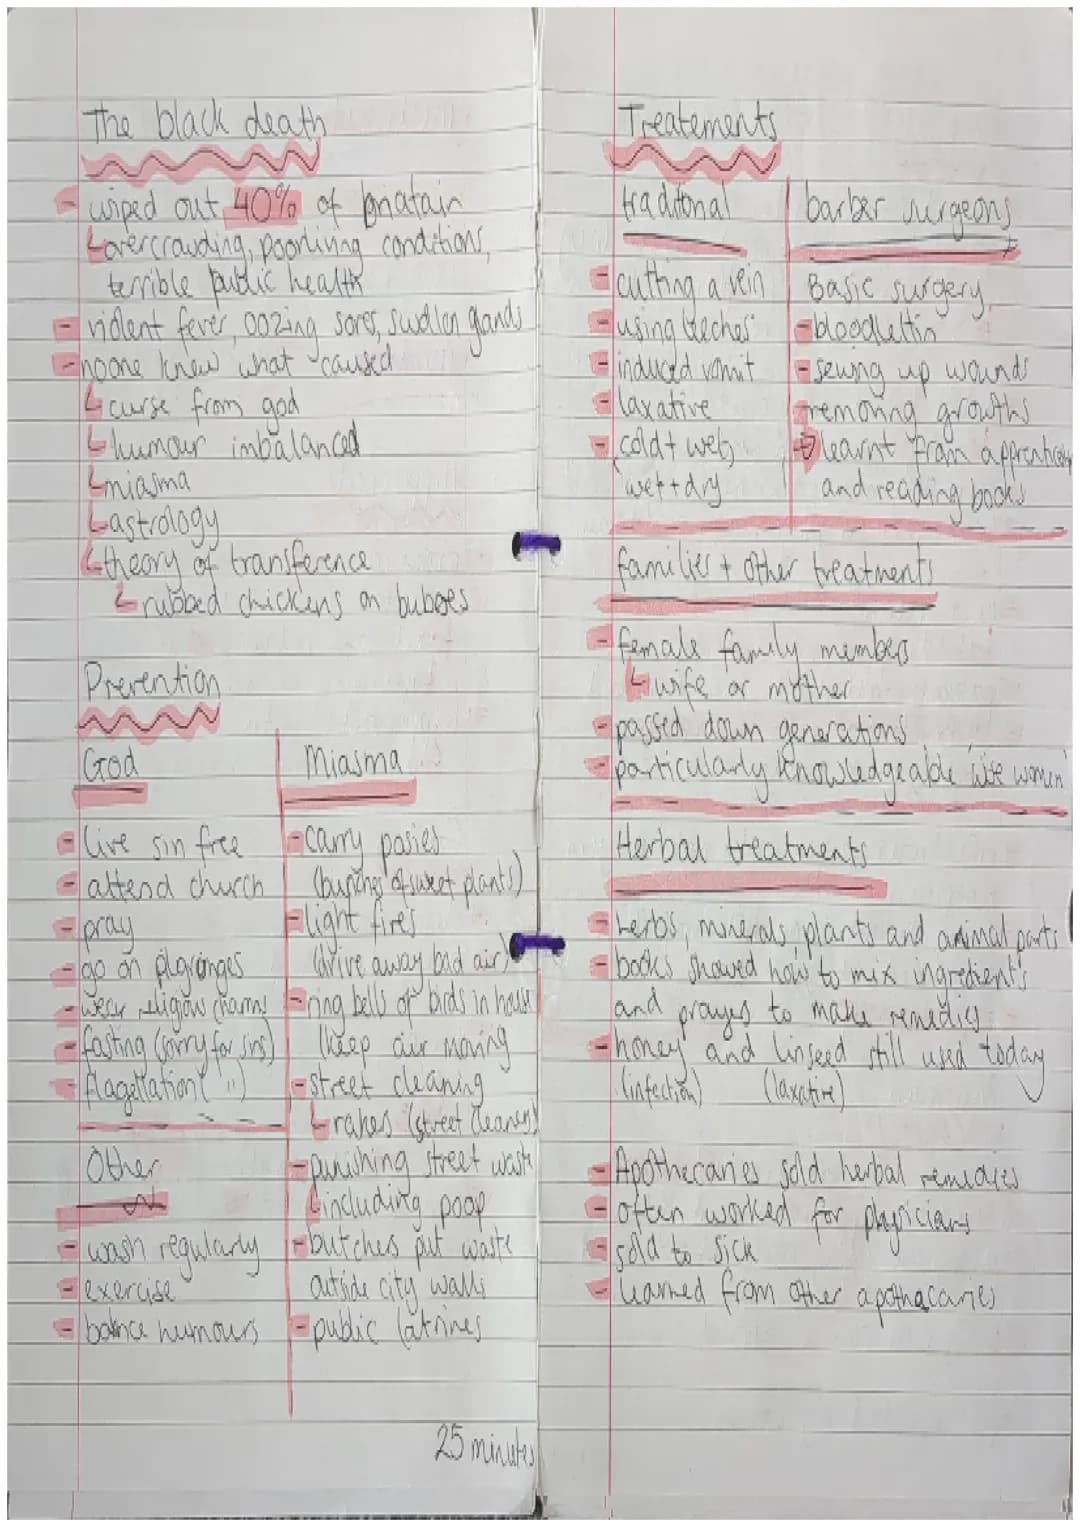 The black death
- wiped out 40% of bratain
overcrowding, poorliving conditions,
terrible public health
- violent fever, oozing sores, swollen glands
- noone knew what caused
curse from god
humour imbalanced
miasma
astrology
theory of transference
rubbed chickens on buboes
Prevention
God
- live sin free
- attend church
- pray
- go on
- wear charms
- fasting (sorry for sins)
- flagellation ( " )
Other
- wash regularly
- exercise
- balnce humours
Miasma
- carry posies
of sweet plants)
- light fires
(drive away bad air)
- ring bells of birds in house
(keep air moving
- street cleaning
rakes (street cleaners)
- punishing street waste
including poop
- butchers put waste
outside city walls
- public latrines
25 minutes
Treatements
traditonal
- cutting a vein
- using leches
- induced vomit
- laxative
- cold + wet,
wet + dry
barber surgeons
Basic surgery
- bloodlettin
- sewing up wounds
- removing growths
→ learnt from
and reading books
families + other treatments
- female family members
wife or mother
- passed down generations
- particularly knowledgeable 'wise women'
Herbal treatments
- herbs, minerals, plants and animal parts
- books showed how to mix ingredients
and prayes to make remedies
- honey and linseed still used today
(infection) (laxative)
- Apothecaries sold herbal remedies
- often worked for physicians
- sold to sick
- learned from other apothacaries